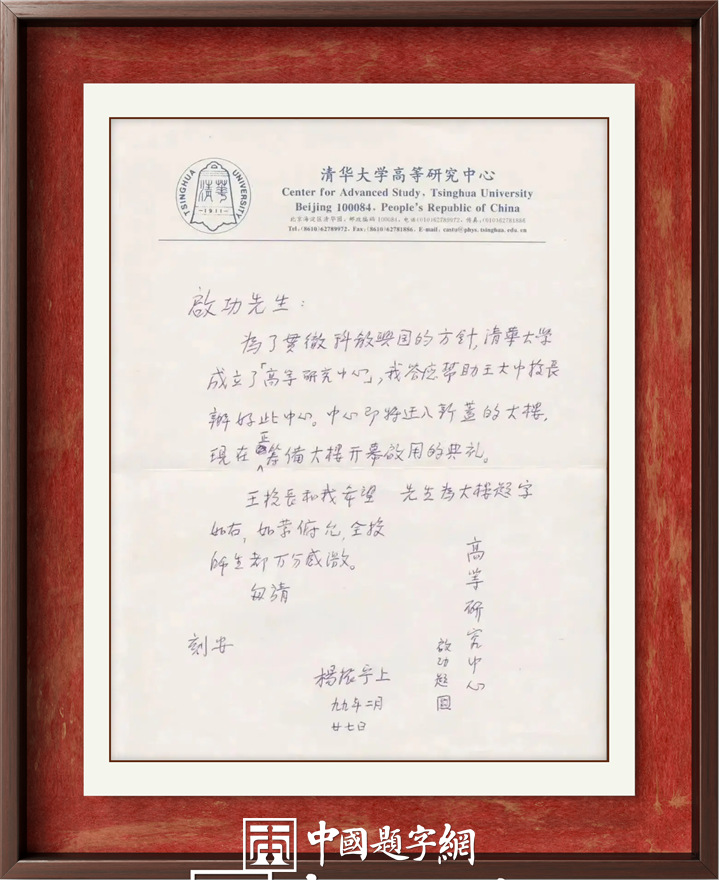 TSINGHUA UNIVERSITY
清華
-1911-
清华大学高等研究中心
Center for Advanced Study, Tsinghua University
Beijing 100084, People's Republic of China
北京海淀区清华园, 邮政编码 100084, 电话(010)62789972, 传真:(010)62781886
Tel:(8610)62789972, Fax:(8610)62781886, E-mail, castu@phys.tsinghua.edu.cn
啟功先生:
為了貫徹科教興国的方針,清華大学
成立了「高等研究中心」,我答应帮助王大中校長
辦好此中心。中心即将迁入新蓋的大樓,
現在正籌備大樓开幕啟用的典礼。
王校長和我希望 先生為大樓題字
如右,如蒙俯允,全校
師生都万分感激。
匆請
刻安
高等研究中心
啟功題
楊振宁上
九九年二月
廿七日
中國題字網